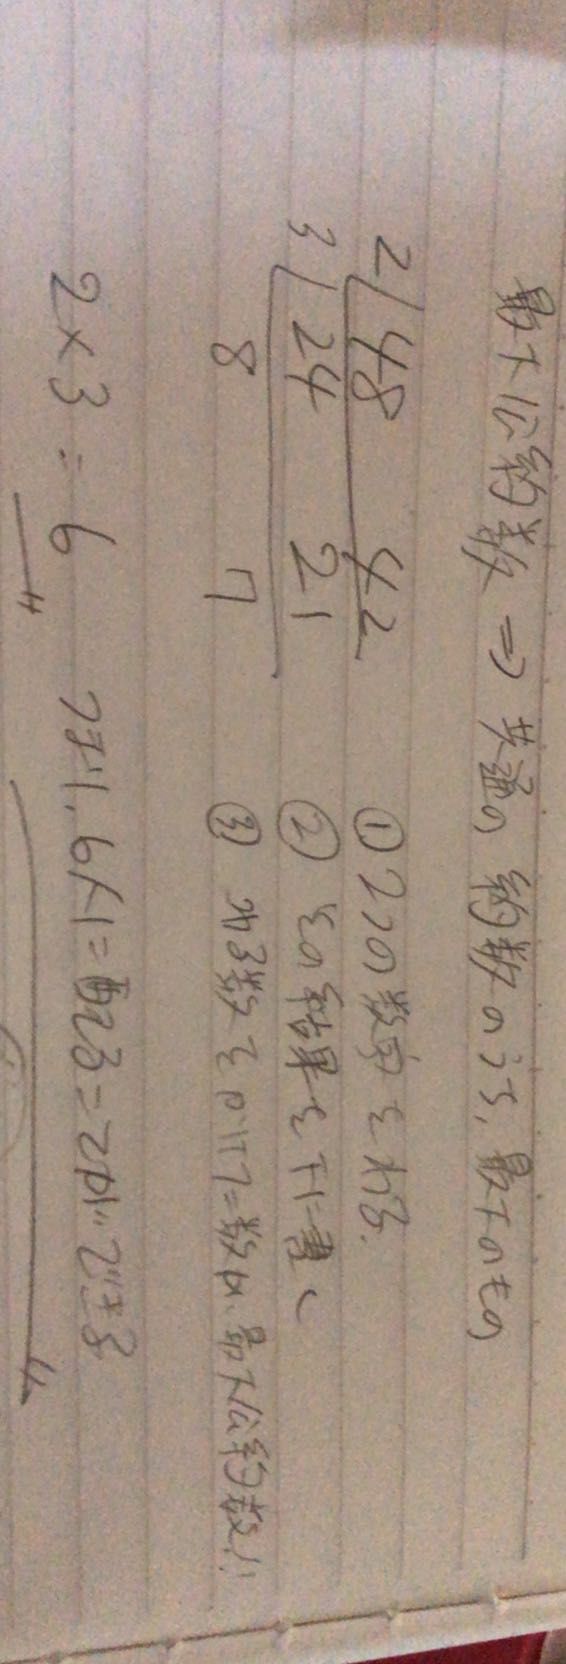 最大公約数 ⇒ 共通の約数のうち、最大のもの
2)48 42
3)24 21
8 7
① 2つの数字をわる.
② その結果を下に書く
③ わる数をかけた数が、最大公約数!!
2×3=6
つまり、6人に配ることができる